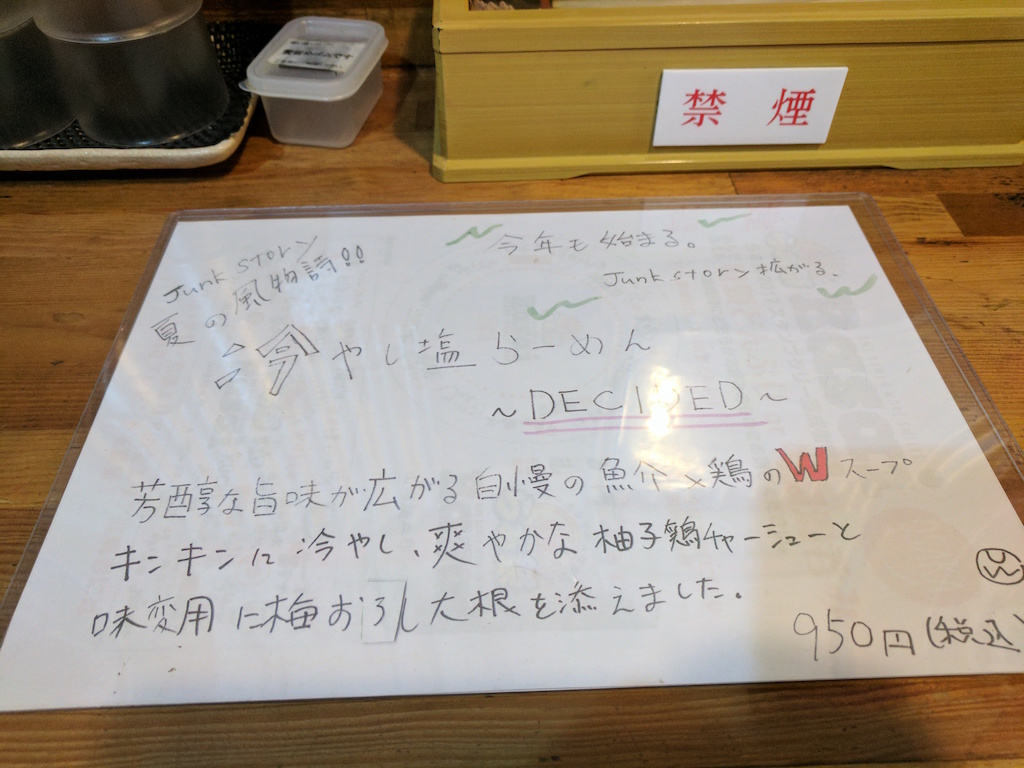 禁煙
Junk STORY
夏の風物詩!!
今年も始まる。
Junk STORY 拡がる。
冷やし塩らーめん
~DECIDED~
芳醇な旨味が広がる自慢の魚介×鶏のWスープ
キンキンに冷やし、爽やかな柚子鶏チャーシューと
味変用に梅おろし大根を添えました。
950円(税込)